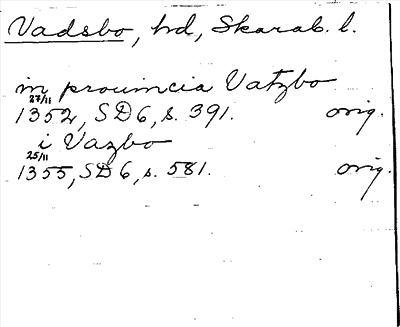 Vadsbo, hd, Skarab. l.
in prouincia Vatzbo
27/11
1352, SD 6, s. 391. orig.
i Vazbo
25/11
1355, SD 6, s. 581. orig.